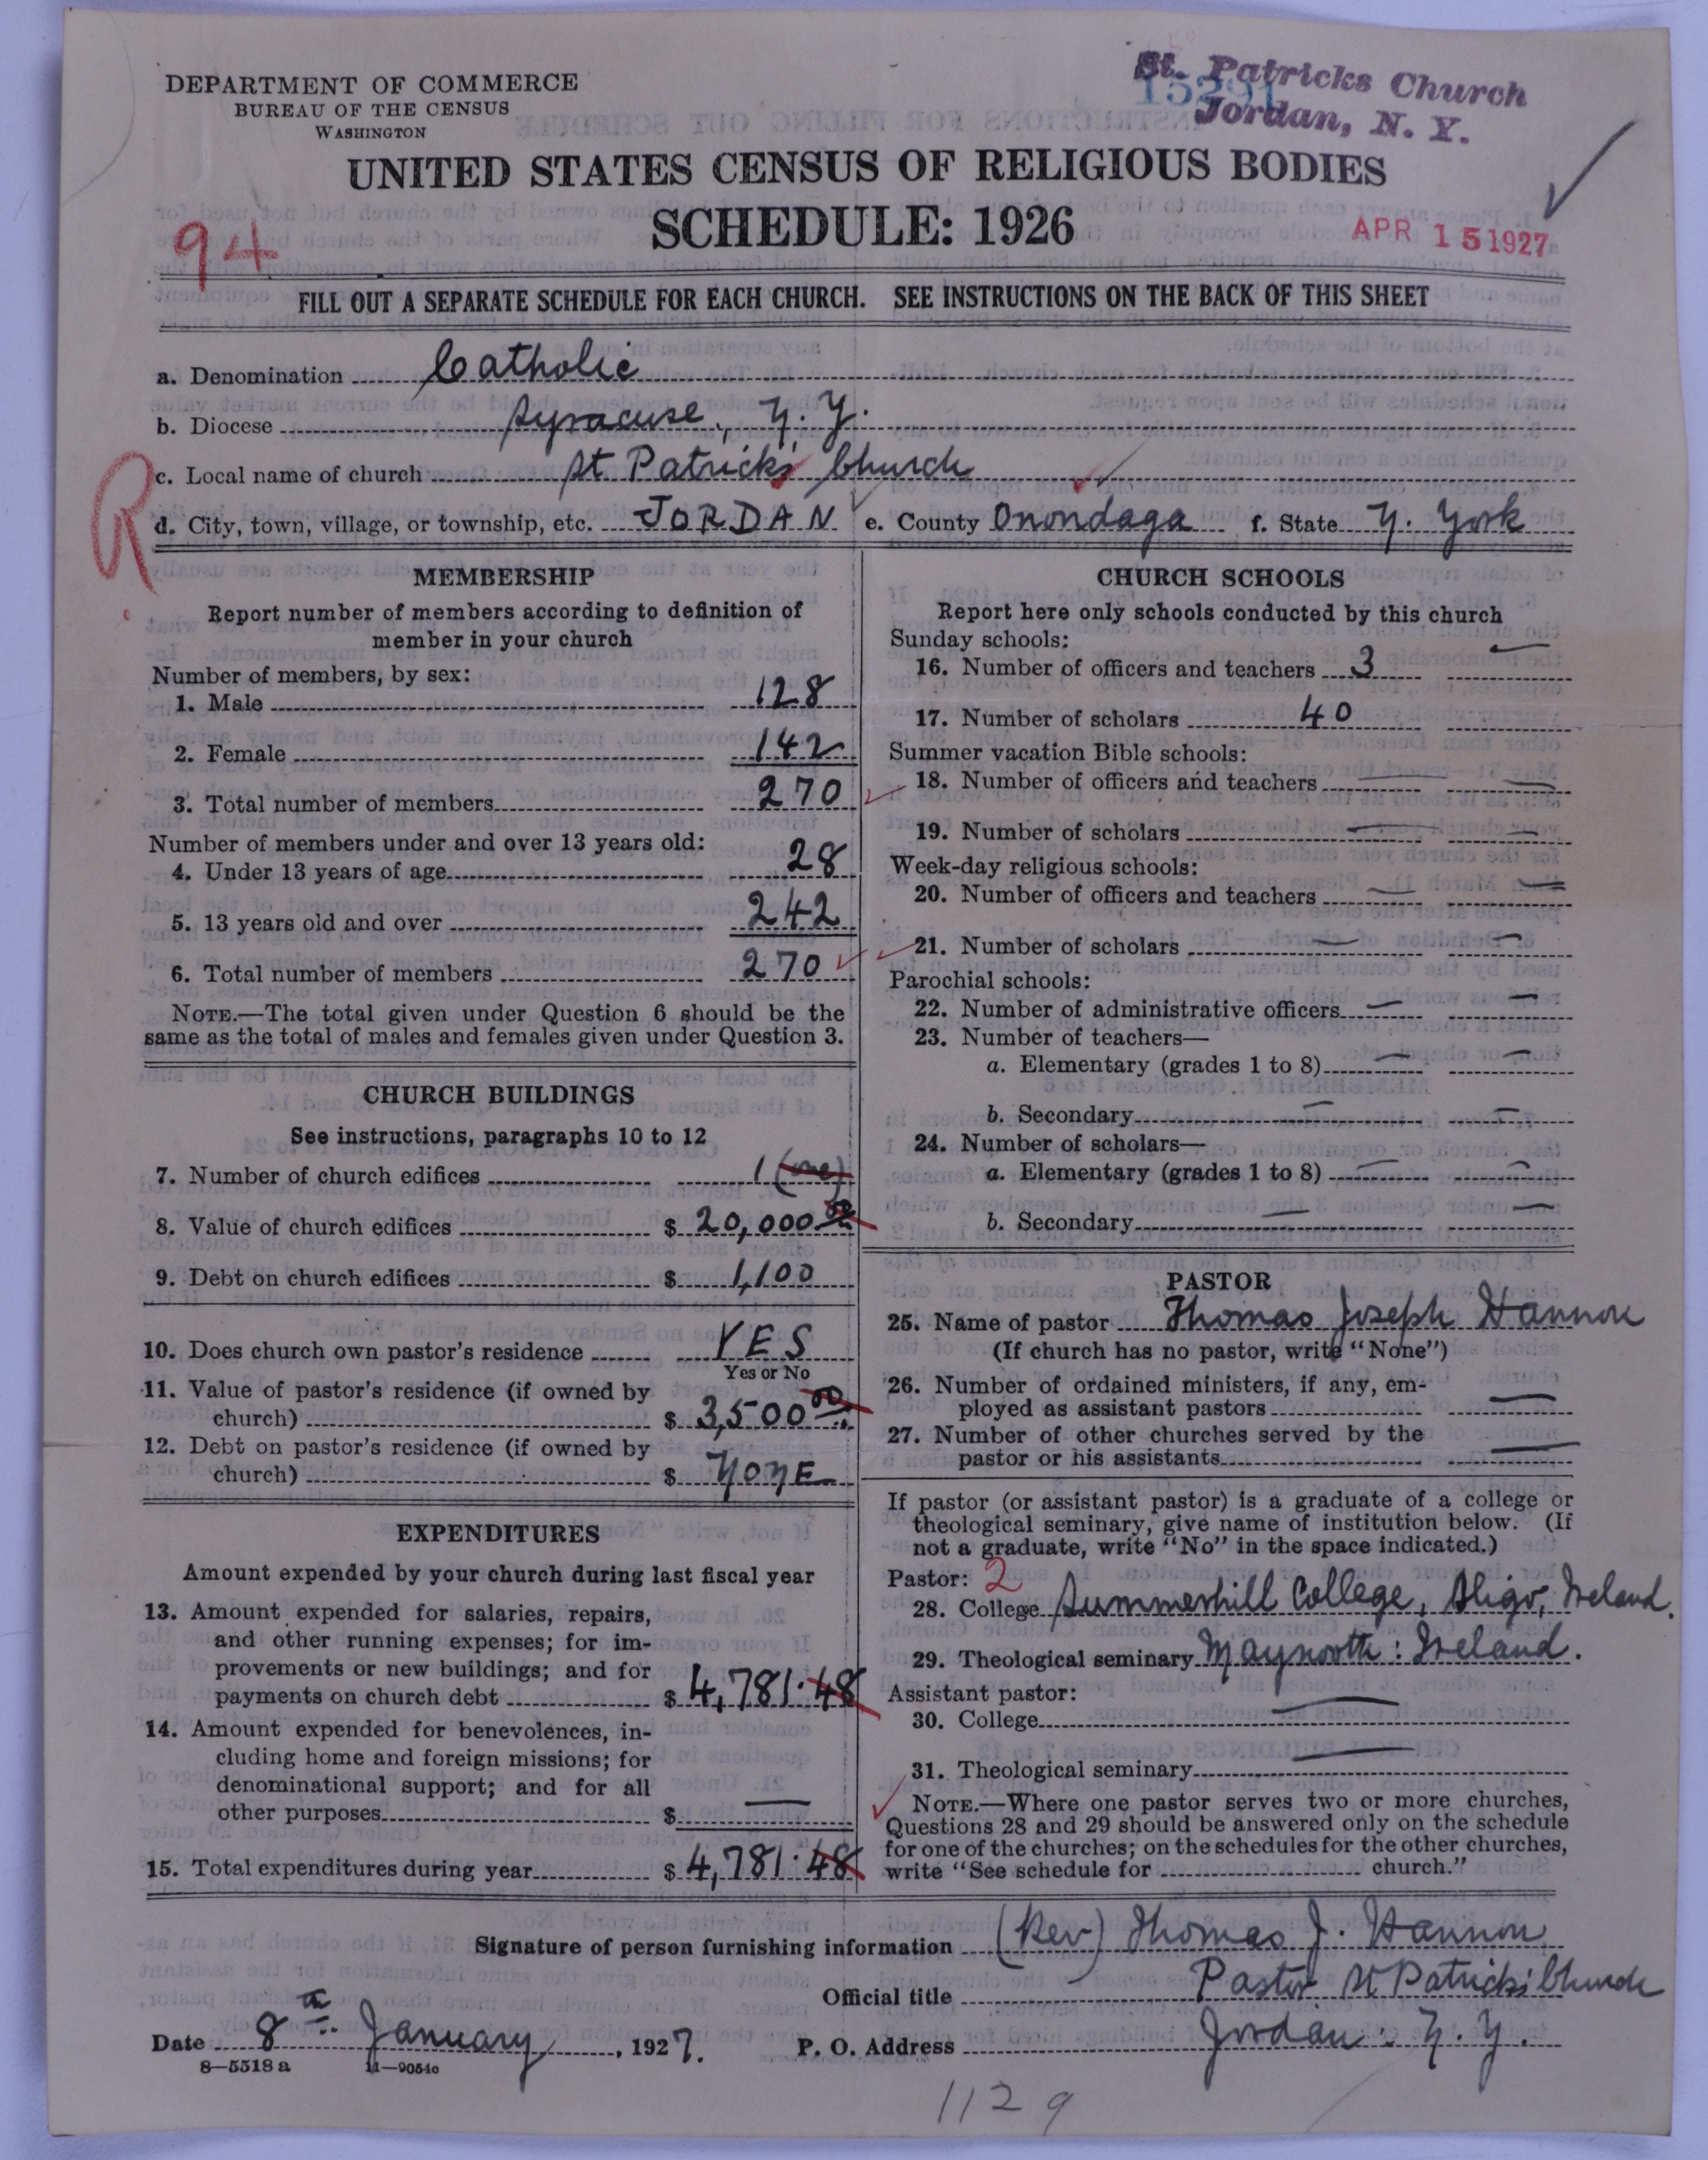 St. Patricks Church
Jordan, N. Y.
DEPARTMENT OF COMMERCE
BUREAU OF THE CENSUS
WASHINGTON
UNITED STATES CENSUS OF RELIGIOUS BODIES
SCHEDULE: 1926
APR 15 1927
94
FILL OUT A SEPARATE SCHEDULE FOR EACH CHURCH. SEE INSTRUCTIONS ON THE BACK OF THIS SHEET
a. Denomination Catholic
b. Diocese Syracuse, N. Y.
R
c. Local name of church St Patrick's Church
d. City, town, village, or township, etc. JORDAN e. County Onondaga f. State N. York
MEMBERSHIP
Report number of members according to definition of
member in your church
Number of members, by sex:
1. Male 128
2. Female 142
3. Total number of members 270
Number of members under and over 13 years old:
4. Under 13 years of age 28
5. 13 years old and over 242
6. Total number of members 270
NOTE.—The total given under Question 6 should be the
same as the total of males and females given under Question 3.
CHURCH BUILDINGS
See instructions, paragraphs 10 to 12
7. Number of church edifices 1 (one)
8. Value of church edifices $ 20,000 00
9. Debt on church edifices $ 1,100
10. Does church own pastor's residence YES
Yes or No
11. Value of pastor's residence (if owned by
church) $ 3,500 00
12. Debt on pastor's residence (if owned by
church) $ NONE
EXPENDITURES
Amount expended by your church during last fiscal year
13. Amount expended for salaries, repairs,
and other running expenses; for im-
provements or new buildings; and for
payments on church debt $ 4,781.48
14. Amount expended for benevolences, in-
cluding home and foreign missions; for
denominational support; and for all
other purposes $ —
15. Total expenditures during year $ 4,781.48
CHURCH SCHOOLS
Report here only schools conducted by this church
Sunday schools:
16. Number of officers and teachers 3
17. Number of scholars 40
Summer vacation Bible schools:
18. Number of officers and teachers —
19. Number of scholars —
Week-day religious schools:
20. Number of officers and teachers —
21. Number of scholars —
Parochial schools:
22. Number of administrative officers —
23. Number of teachers—
a. Elementary (grades 1 to 8) —
b. Secondary —
24. Number of scholars—
a. Elementary (grades 1 to 8) —
b. Secondary —
PASTOR
25. Name of pastor Thomas Joseph Hannon
(If church has no pastor, write "None")
26. Number of ordained ministers, if any, em-
ployed as assistant pastors —
27. Number of other churches served by the
pastor or his assistants —
If pastor (or assistant pastor) is a graduate of a college or
theological seminary, give name of institution below. (If
not a graduate, write "No" in the space indicated.)
Pastor: 2
28. College Summerhill College, Sligo, Ireland.
29. Theological seminary Maynooth: Ireland.
Assistant pastor:
30. College —
31. Theological seminary —
NOTE.—Where one pastor serves two or more churches,
Questions 28 and 29 should be answered only on the schedule
for one of the churches; on the schedules for the other churches,
write "See schedule for church."
Signature of person furnishing information (Rev) Thomas J. Hannon
Official title Pastor St Patrick's Church
Date 8th January, 1927. P. O. Address Jordan: N. Y.
8—5518 a 11—9054c
1129